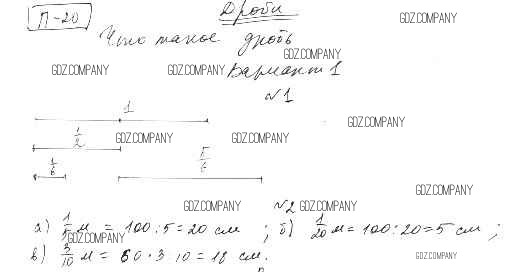 П-20 Дроби
Что такое дробь
GDZ.COMPANY
GDZ.COMPANY
GDZ.COMPANY GDZ.COMPANY Вариант 1
№1
1
GDZ.COMPANY
1/2 GDZ.COMPANY GDZ.COMPANY
1/6 5/6
GDZ.COMPANY
GDZ.COMPANY №2 GDZ.COMPANY
а) 1/5 м = 100 : 5 = 20 см ; б) 1/20 м = 100 : 20 = 5 см ;
GDZ.COMPANY
в) 3/10 м = 60 · 3 10 = 18 см.
GDZ.COMPANY